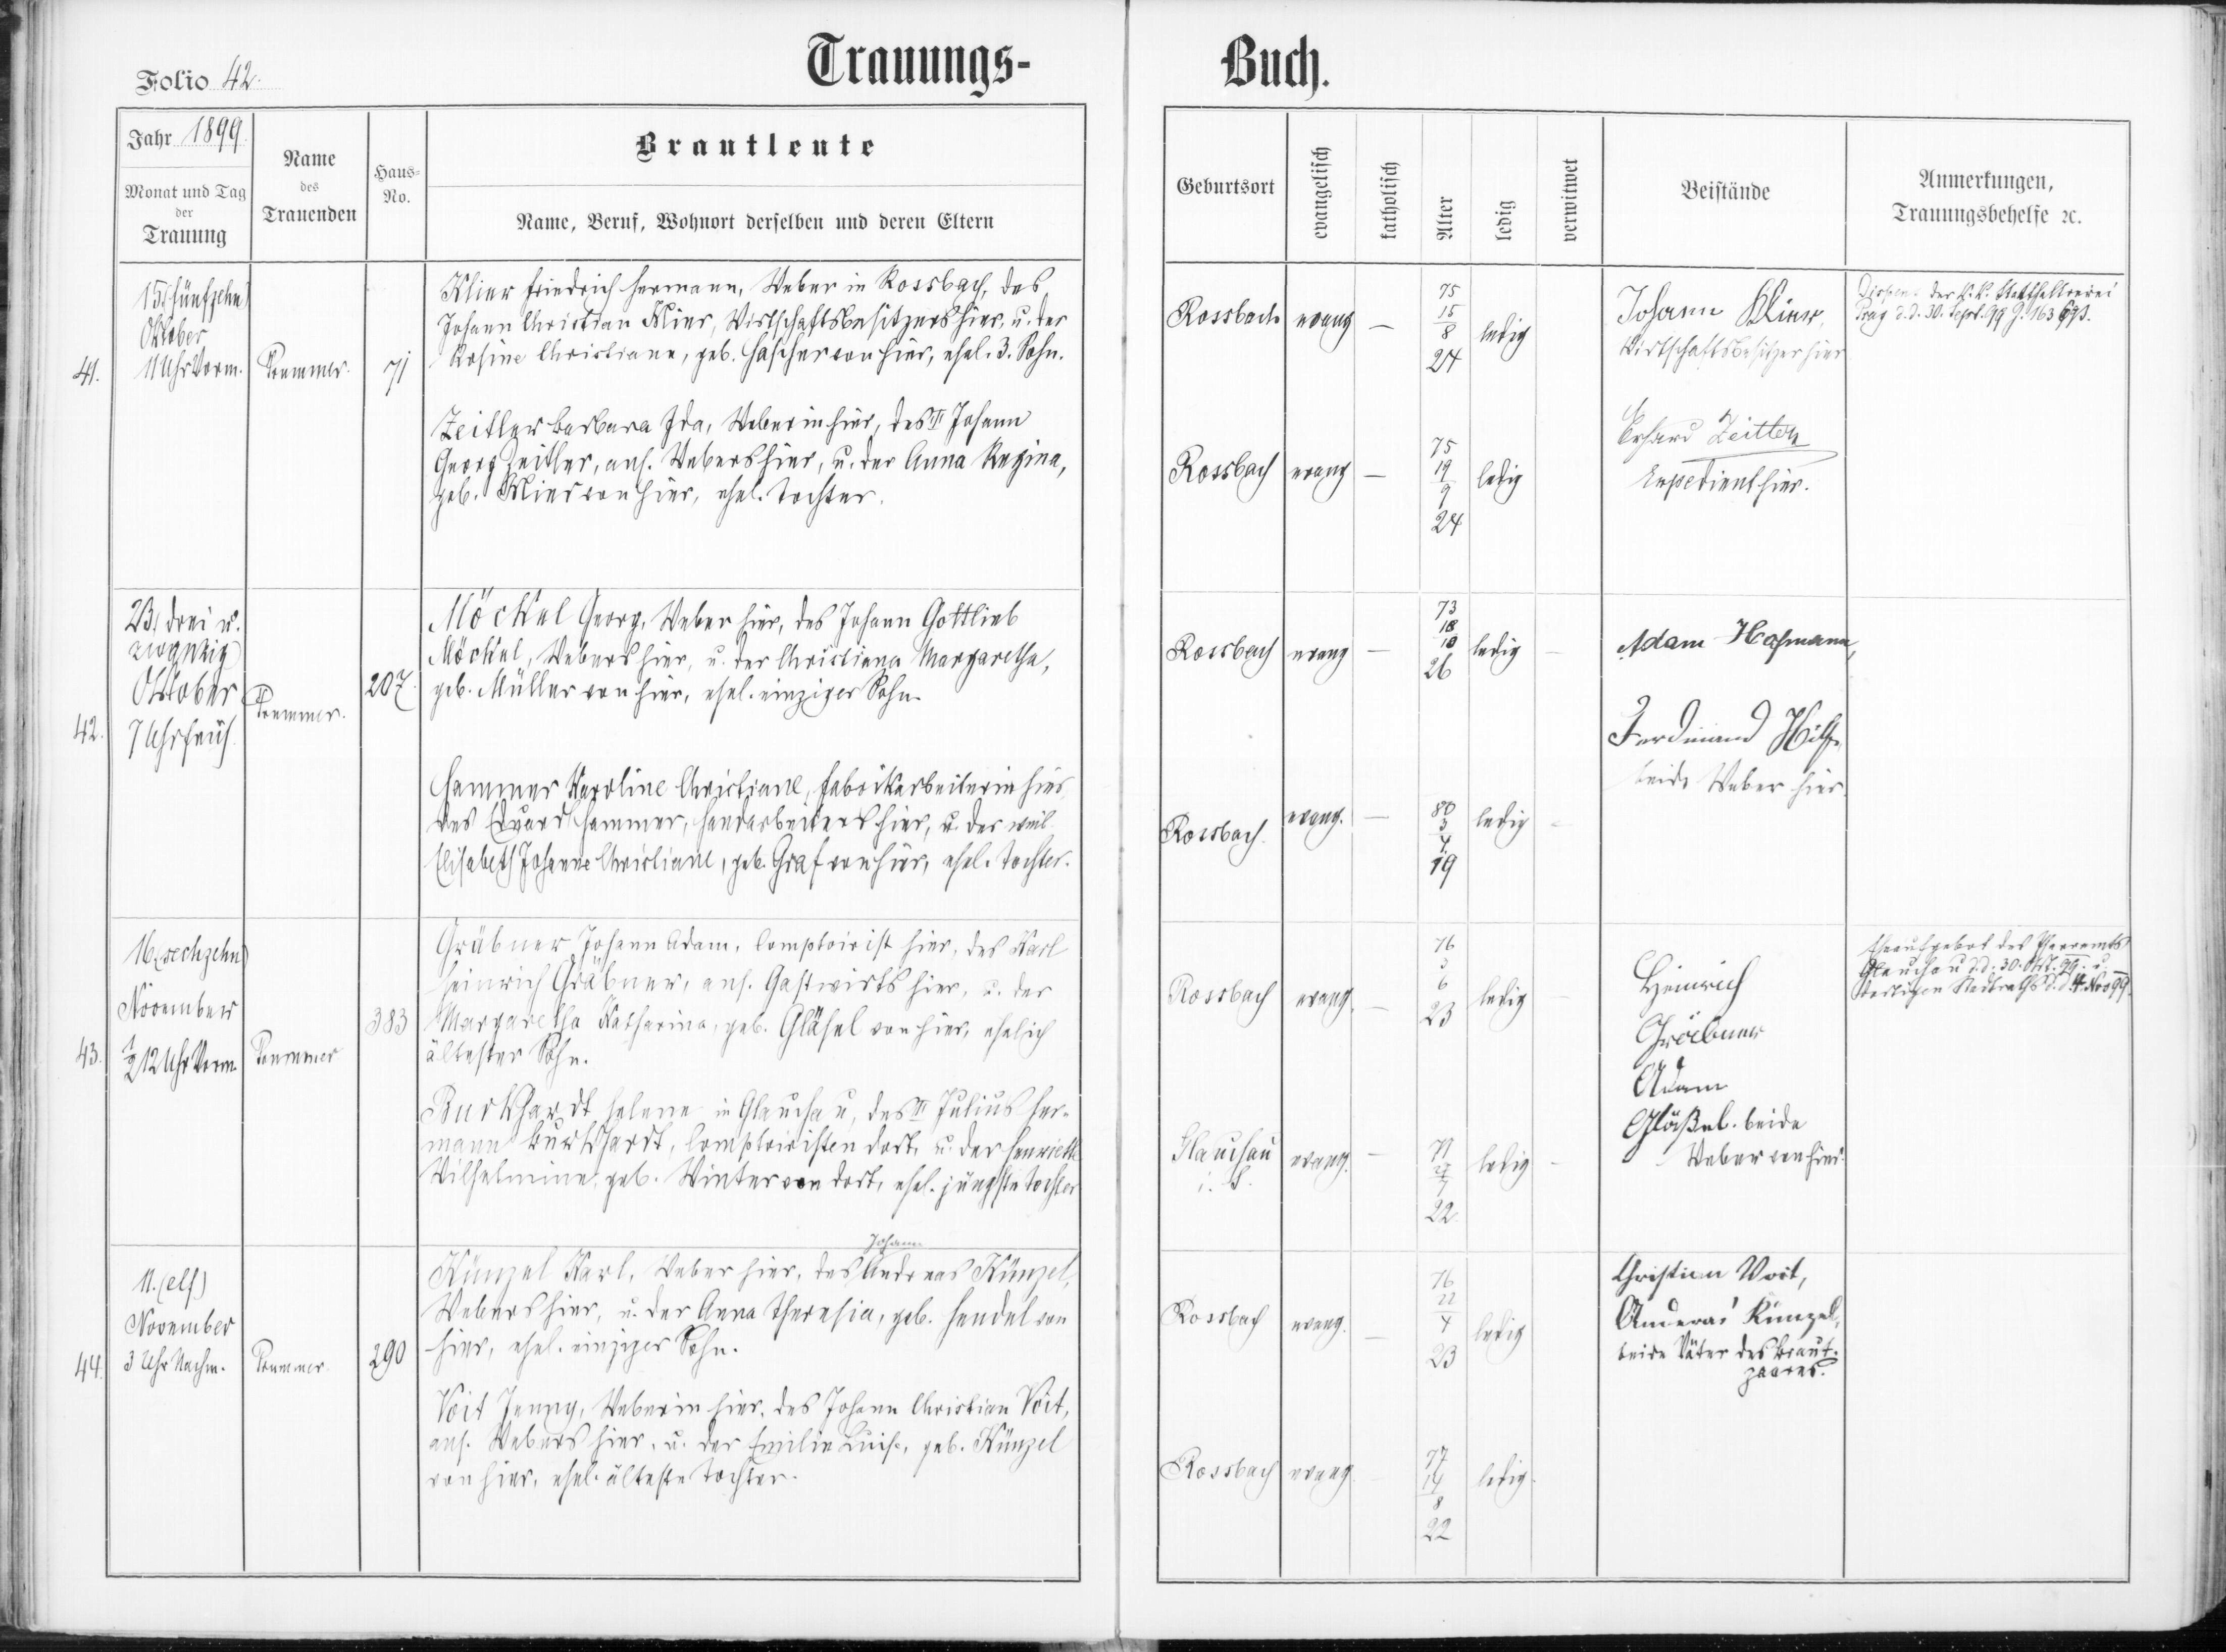 Trauungs-
Buch.
Folio 42.
Jahr 1899.
Monat und Tag
der
Trauung
Name
des
Trauenden
Haus-
No.
Brautleute
Name, Beruf, Wohnort derselben und deren Eltern
Geburtsort
evangelisch
katholisch
Alter
ledig
verwitwet
Beistände
Anmerkungen,
Trauungsbehelfe ꝛc.
41.
15. (fünfzehn)
Oktober
11 Uhr Vorm.
71
Klier Friedrich Hermann, Weber in Rossbach, des
Johann Christian Klier, Wirtschaftsbesitzers hier, u. der
Rosine Christiane, geb. Hascher von hier, ehel. 3. Sohn.
Zeitler Barbara Ida, Weberin hier, des Johann
Georg Zeitler, ans. Webers hier, u. der Anna Regina,
geb. Klier von hier, ehel. Tochter.
Rossbach
evang
—
75
15
8
24
ledig
Rossbach
evang
—
75
19
9
24
ledig
Johann Klier,
Wirtschaftsbesitzer hier
Erhard Zeitler
Expedient hier.
Dispens der k.k. Statthalterei
Prag d.d. 30. Sept. 99
42.
23. (drei u.
zwanzig)
Oktober
7 Uhr früh.
207.
Möckel Georg, Weber hier, des Johann Gottlieb
Möckel, Webers hier, u. der Christiana Margaretha,
geb. Müller von hier, ehel. einziger Sohn.
Hammer Karoline Christiane, Fabrikarbeiterin hier
des Eduard Hammer, Handarbeiters hier, u. der weil.
Elisabeth Johanne Christiane, geb. Graf von hier, ehel. Tochter.
Rossbach
evang
—
73
18
10
26
ledig
Rossbach.
evang.
—
80
3
4
19
ledig
Adam Hofmann,
Ferdinand
beide Weber hier.
43.
16. (sechzehn)
November
½ 12 Uhr Vorm.
383
Gräbner Johann Adam, Comptoirist hier, des Karl
Heinrich Gräbner, ans. Gastwirts hier, u. der
Margaretha Katharina, geb. Gläsel von hier, ehelich
ältester Sohn.
Burkhardt Helene in Glauchau, des Julius Her-
mann Burkhardt, Comptoiristen dort, u. der Henriette
Wilhelmine, geb. Winter von dort, ehel. jüngste Tochter
Rossbach
evang.
—
76
3
6
23
ledig
Glauchau
i. S.
evang.
—
77
7
22.
ledig
Heinrich
Gräbner
Adam
Gläßel. beide
Weber von hier.
Eheaufgebot des Pfarramts
Glauchau d.d. 30. Okt. 99. u.
dortigen Stadtraths d.d. 4. Nov 99.
44.
11. (elf)
November
3 Uhr Nachm.
290
Johann
Künzel Karl, Weber hier, des Andreas Künzel,
Webers hier, u. der Anna Theresia, geb. Hendel von
hier, ehel. einziger Sohn.
Voit Jenny, Weberin hier, des Johann Christian Voit,
ans. Webers hier, u. der Emilie Luise, geb. Künzel
von hier, ehel. älteste Tochter.
Rossbach
evang.
—
76
22
4
23
ledig
Rossbach
evang.
77
14
8
22
ledig.
Christian Voit,
Künzel,
beide Väter des Braut-
paares.